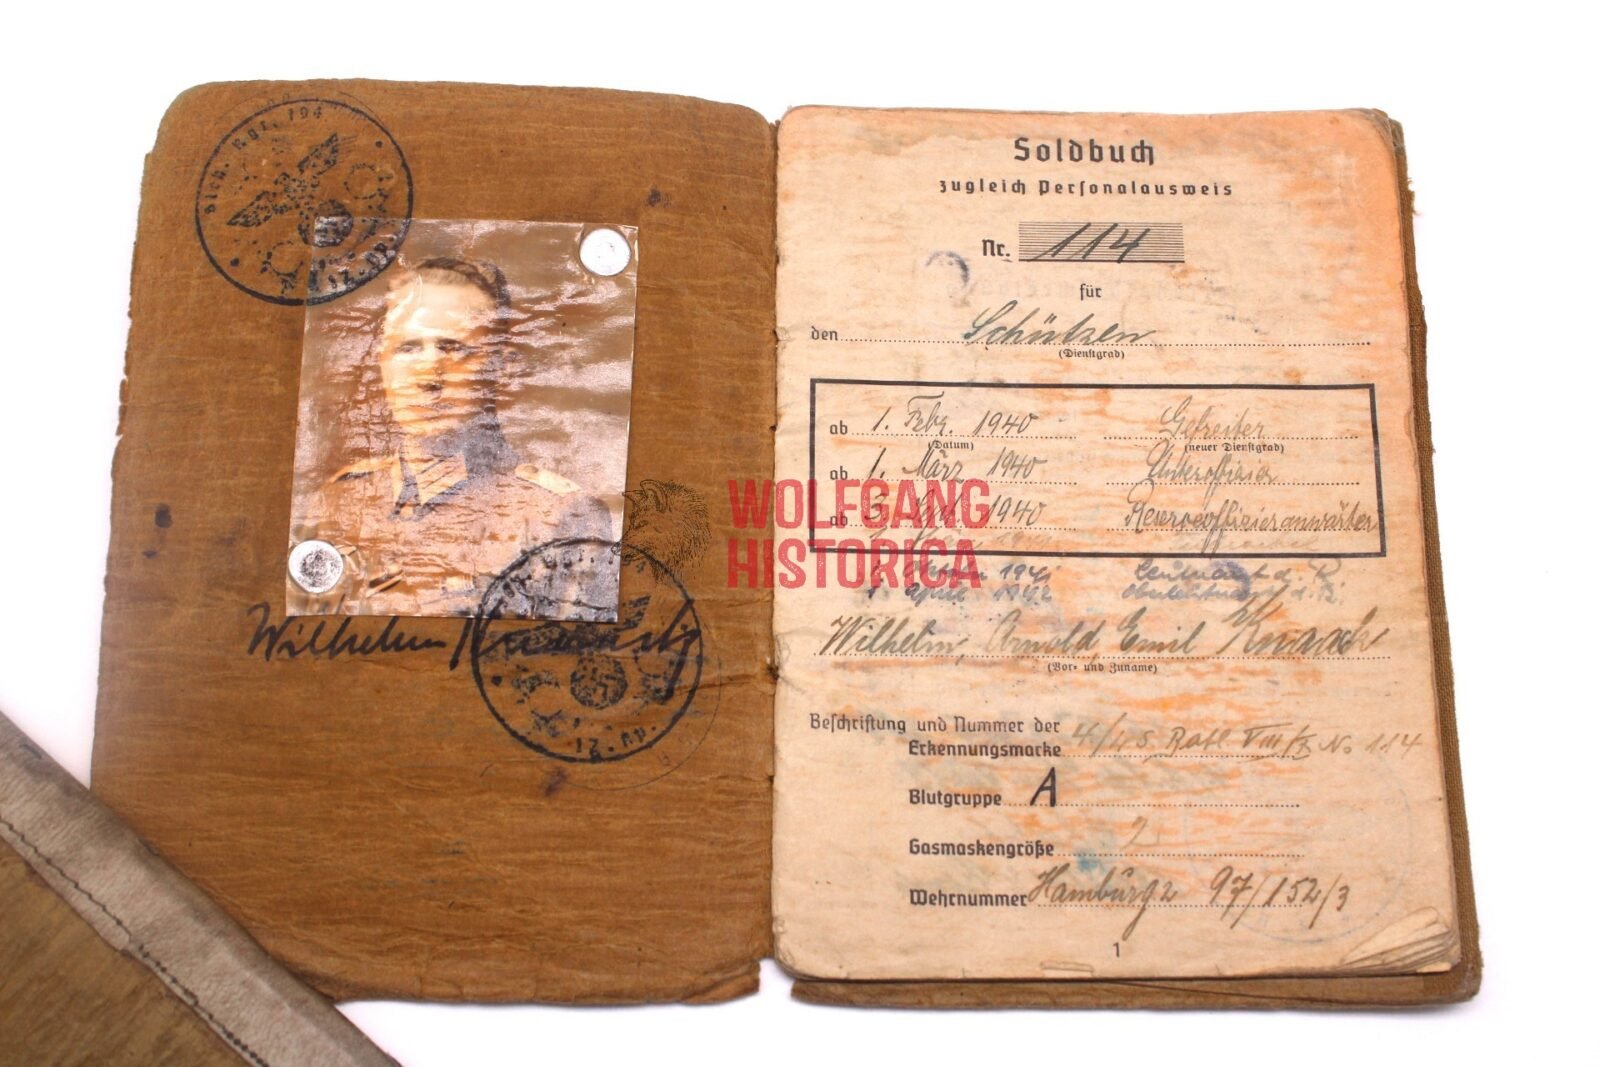 Sich. Rgt. 194
12. Kp.
Wilhelm Knaack
Rgt. 194
12. Kp.
Soldbuch
zugleich Personalausweis
Nr. 114
für
den Schützen
(Dienstgrad)
ab 1. Febr. 1940 Gefreiter
(Datum) (neuer Dienstgrad)
ab 1. März 1940 Unteroffizier
ab 3. 1940 Reserveoffizieranwärter
1. Oktober 1941 Leutnant d. R.
1. April 1942 Oberleutnant d. R.
Wilhelm, Arnold, Emil Knaack
(Vor- und Zuname)
Beschriftung und Nummer der
Erkennungsmarke 4/4 No 114
Blutgruppe A
Gasmaskengröße 2
Wehrnummer Hamburg 2 97/152/3
1
WOLFGANG
HISTORICA